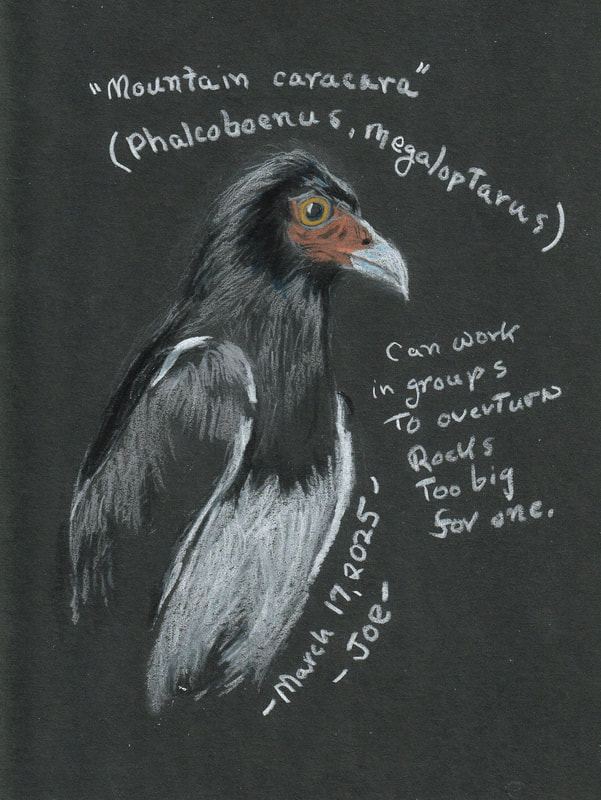 "Mountain caracara"
(Phalcoboenus, megaloptarus)
Can work
in groups
To overturn
Rocks
Too big
for one.
-March 17, 2025-
-Joe-